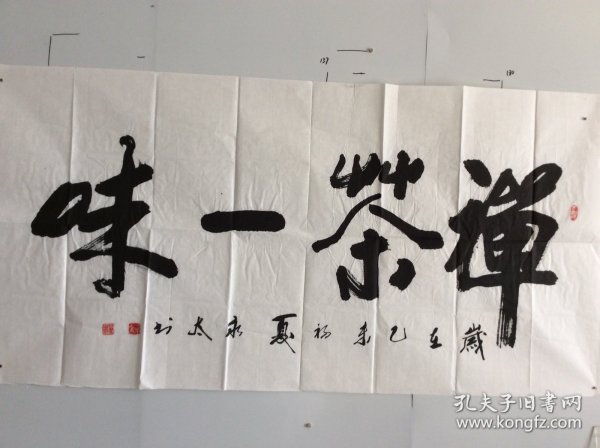 禪茶一味
歲在乙未初夏永太书
孔夫子旧书网
www.kongfz.com